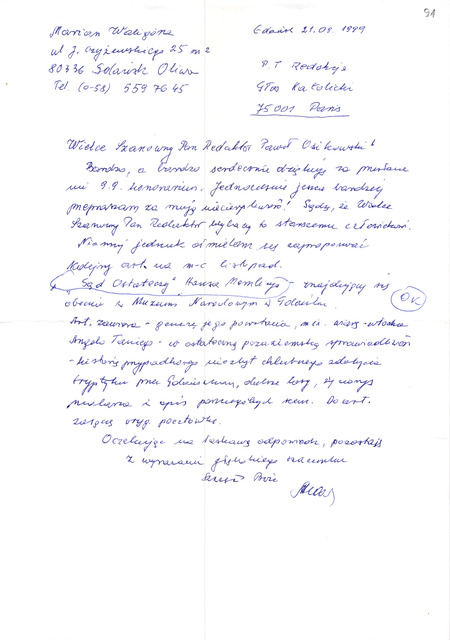 91
Marian Waligóra
ul. J. Czyżewskiego 25 m 2
80336 Gdańsk Oliwa
Tel (0-58) 5597645
Gdańsk 21.09.1999
P.T. Redakcja
Głos Katolicki
75001 Paris
Wielce Szanowny Pan Redaktor Paweł Osikowski!
Bardzo, a bardzo serdecznie dziękuję za przesłane
mi 9.9. honorarium. Jednocześnie jeszcze bardziej
przepraszam za moją niecierpliwość! Sądzę, że Wielce
Szanowny Pan Redaktor wybaczy to starszemu człowiekowi.
Niemniej jednak ośmielam się zaproponować
kolejny art. na m-c listopad.
"Sąd Ostateczny" Hansa Memlinga - znajdujący się
obecnie w Muzeum Narodowym w Gdańsku.
OK
Art. zawiera - genezę jego powstania, m.in. wiarę włocha
Angelo Taniego - w ostateczną pozaziemską sprawiedliwość
- historię przypadkowego niezbyt chlubnego zdobycia
tryptyku przez Gdańszczan, dalsze losy,
malarza i opis poszczególnych scen. Do art.
załączę oryg. pocztówkę.
Oczekując na łaskawą odpowiedź, pozostaję
z wyrazami głębokiego szacunku
Szczęść Boże